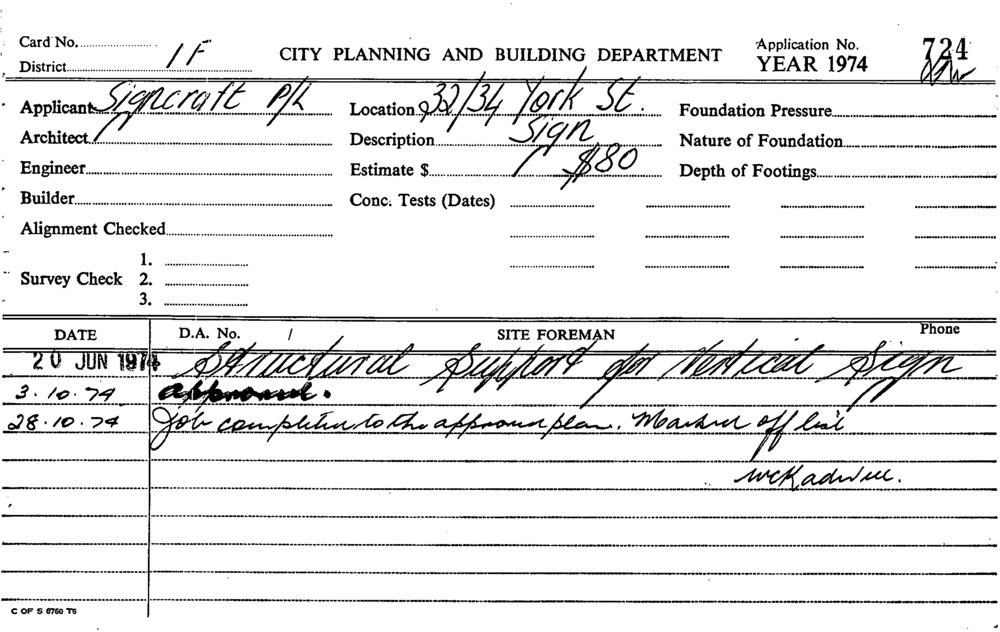 Card No. 1F CITY PLANNING AND BUILDING DEPARTMENT Application No. 724
District YEAR 1974
Applicant Signcraft P/L Location 32/34 York St. Foundation Pressure
Architect Description Sign Nature of Foundation
Engineer Estimate $ $80 Depth of Footings
Builder Conc. Tests (Dates)
Alignment Checked
1.
Survey Check 2.
3.
DATE D.A. No. / SITE FOREMAN Phone
20 JUN 1974 Structural Support for Vertical Sign
3.10.74 approved.
28.10.74 Job completed to the approved plan. Marked off list
C OF S 6760 T6